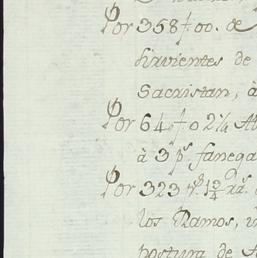 Por 358 f 00. de
sirvientes de
Sacristan, à
Por 64 f 02 ¼ A
à 3 p.s fanega
Por 323 p.s 1 ¾ rr.s
los Ramos, i
postura de A